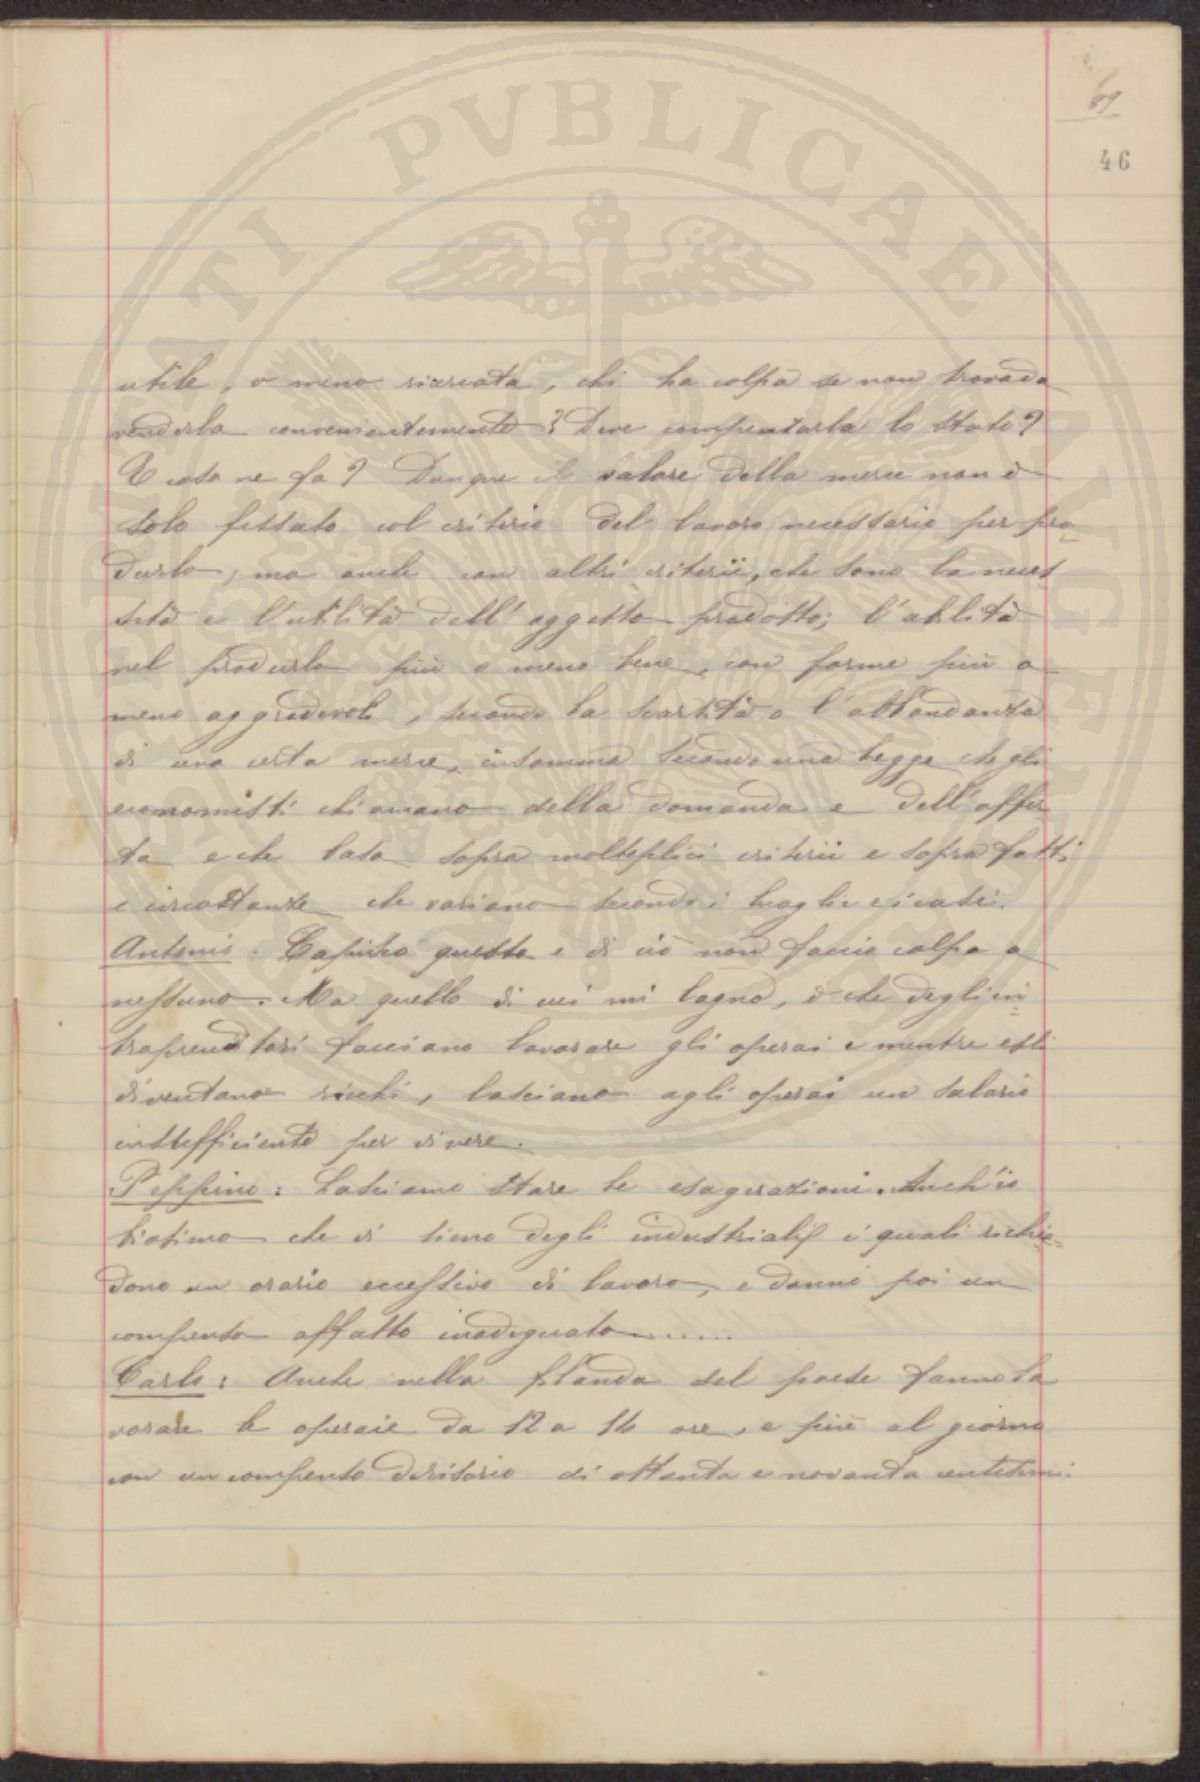 89
46
utile, o meno ricercata, chi ha colpa se non trova da
venderla convenientemente? Deve comperarla lo Stato?
E cosa ne fa? Dunque il valore della merce non è
solo fissato col criterio del lavoro necessario per pro-
durlo, ma anche con altri criterii, che sono la neces
sità e l'utilità dell'oggetto prodotto; l'abilità
nel produrlo più o meno bene, con forme più o
meno aggradevoli, secondo la scarsità o l'abbondanza
di una certa merce, insomma secondo una legge che gli
economisti chiamano della domanda e dell'offer
ta e che basa sopra molteplici criterii e sopra fatti
e circostanze che variano secondo i luoghi e i casi.
Antonio. Capisco questo e di ciò non faccio colpa a
nessuno. Ma quello di cui mi lagno, è che degli in-
traprenditori facciano lavorare gli operai e mentre essi
diventano ricchi, lasciano agli operai un salario
insufficiente per vivere.
Peppino: Lasciamo stare le esagerazioni. Anch'io
biasimo che vi siano degli industriali i quali richie-
dono un orario eccessivo di lavoro, e danno poi un
compenso affatto inadeguato......
Carlo: Anche nella filanda del paese fanno la
vorare le operaie da 12 a 14 ore, e più al giorno
con un compenso derisorio di ottanta e novanta centesimi.
PVBLICAE